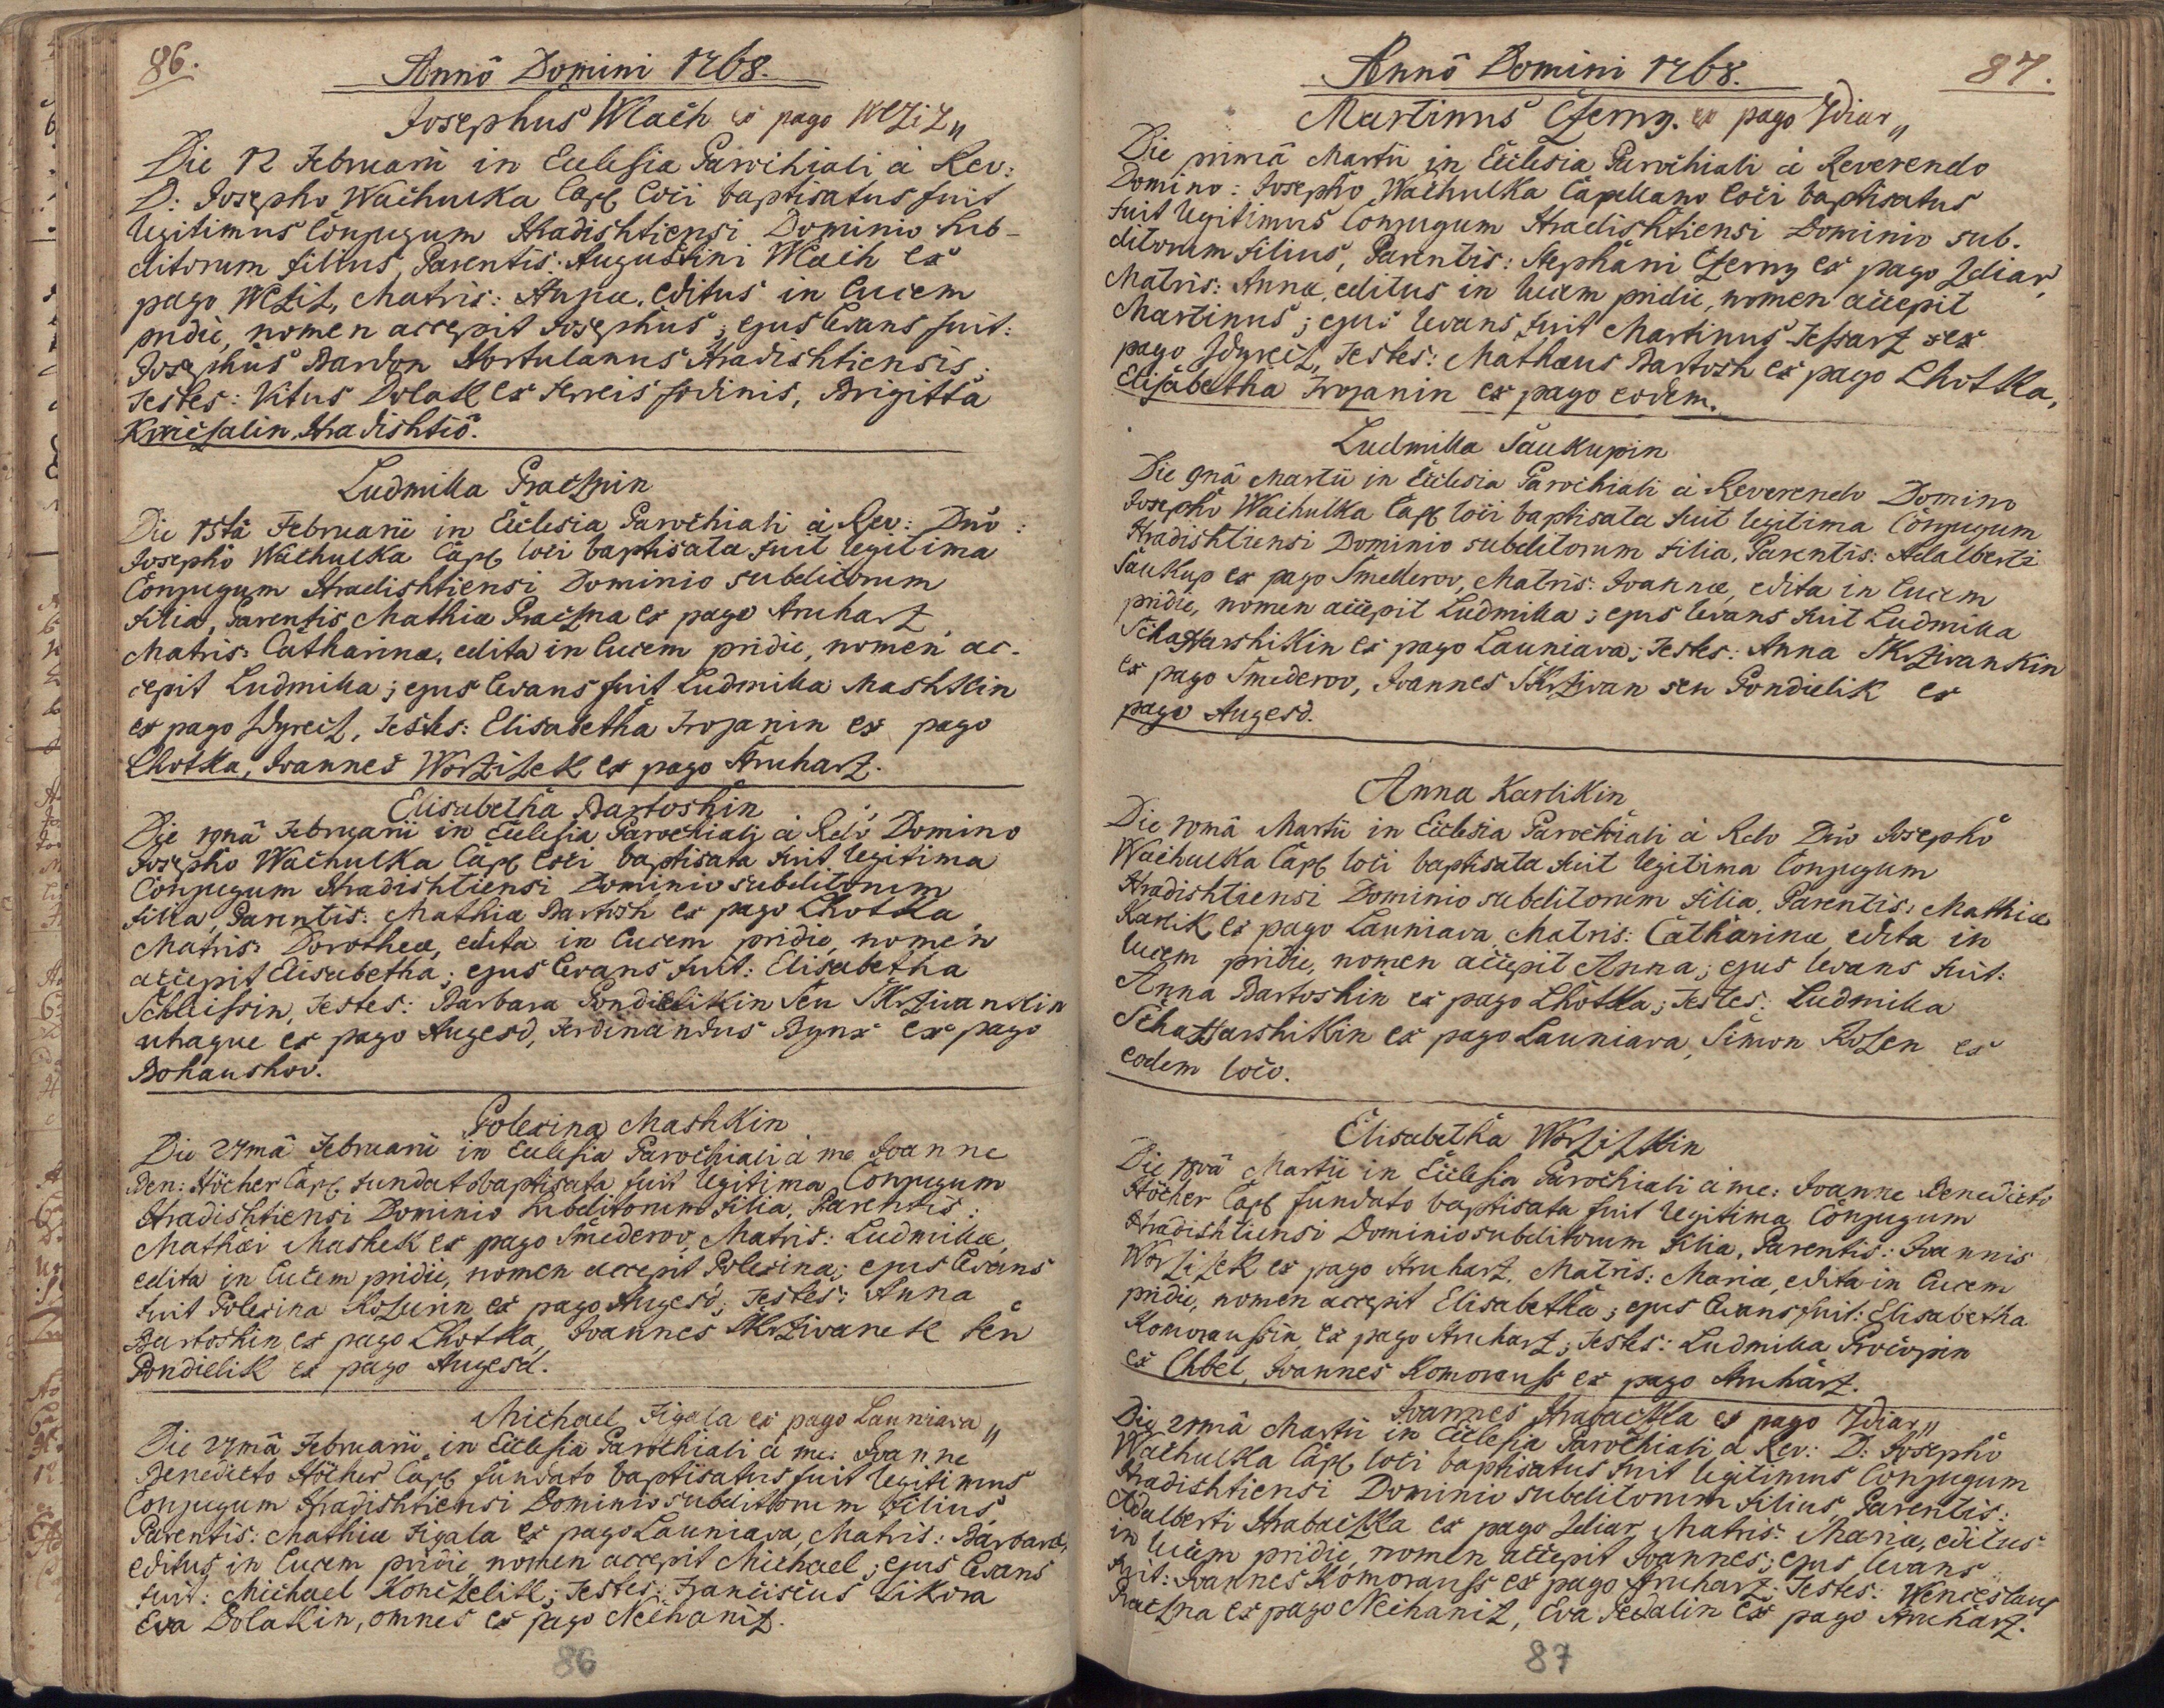 86.
Annô Domini 1768.
Josephus Wlach ex pago Weziz„
Die 12 Februarii in Ecclesia Parochiali à Rev:
D: Josepho Wachulka Capl loci baptisatus fuit
legitimus Conjugum Hradishtiensi Dominio sub-
ditorum filius, Parentis: Augustini Wlach ex
pago Weziz, Matris: Annæ, editus in lucem
pridie, nomen accepit Josephus; ejus levans fuit:
Josephus Bardon Hortulanus Hradishtiensis.
Testes: Vitus Dolak ex ferreis fodinis, Brigitta
Hradishtiô.
Ludmilla Pracznin
Die 15tâ Februarii in Ecclesia Parochiali à Rev: Dnô:
Josepho Wachulka Capl loci baptisata fuit legitima
Conjugum Hradishtiensi Dominio subditorum
filia, Parentis Mathiæ Praczna ex pago Struharz,
Matris: Catharinæ, edita in lucem pridie, nomen ac-
cepit Ludmilla; ejus levans fuit Ludmilla Mashkin
ex pago Zdyrecz, Testes: Elisabetha Trojanin ex pago
Lhotka, Joannes Worzizek ex pago Struharz.
Elisabetha Bartoshin
Die 19nâ Februarii in Ecclesia Parochiali à Rdô Domino
Josepho Wachulka Capl loci baptisata fuit legitima
Conjugum Hradishtiensi Dominio subditorum
filia, Parentis: Mathiæ Bartosh ex pago Lhotka,
Matris: Dorotheæ, edita in lucem pridie, nomen
accepit Elisabetha; ejus levans fuit: Elisabetha
Schleissin, Testes: Barbara Pondielikin seu Skrziwankin
utraque ex pago Augesd, Ferdinandus Bynx ex pago
Bohaushov.
Polexina Mashkin
Die 27mâ Februarii in Ecclesia Parochiali à me Joanne
Ben: Höcher Capl. fundato baptisata fuit legitima Conjugum
Hradishtiensi Dominio subditorum filia, Parentis:
Mathæi Mashek ex pago Smederov, Matris: Ludmillæ,
edita in lucem pridie, nomen accepit Polexina; ejus levans
fuit Polexina Kozurin ex pago Augesd; Testes: Anna
Bartoshin ex pago Lhotka, Joannes Skrziwanek seu
Pondielik ex pago Augesd.
Michael Figala ex pago Launiava„
Die 27mâ Februarii in Ecclesia Parochiali à me: Joanne
Benedicto Höcher Capl fundato baptisatus fuit legitimus
Conjugum Hradishtiensi Dominio subditorum filius
Parentis: Mathiæ Figala ex pago Launiava, Matris: Barbaræ,
editus in lucem pridie, nomen accepit Michael; ejus levans
fuit: Michael Konczelik; Testes: Franciscus Sikora
Eva Dolakin, omnes ex pago Nechaniz.
86
Annô Domini 1768.
87.
Martinus Czerny. ex pago Zdiar„
Die primâ Martii in Ecclesia Parochiali à Reverendo
Domino: Josepho Wachulka Capellano loci baptisatus
fuit legitimus Conjugum Hradishtiensi Dominio sub-
ditorum filius, Parentis: Stephani Czerny ex pago Zdiar,
Matris: Annæ, editus in lucem pridie, nomen accepit
Martinus; ejus levans fuit Martinus Tessarz ex
pago Zdyrecz, Testes: Mathæus Bartosh ex pago Lhotka,
Elisabetha Trojanin ex pago eodem.
Ludmilla Saukupin
Die 9nâ Martii in Ecclesia Parochiali à Reverendo Domino
Josepho Wachulka Capl loci baptisata fuit legitima Conjugum
Hradishtiensi Dominio subditorum filia, Parentis: Adalberti
Saukup ex pago Smederov, Matris: Joannæ, edita in lucem
pridie, nomen accepit Ludmilla; ejus levans fuit Ludmilla
Schaffarshikin ex pago Launiava; Testes: Anna Skrziwankin
ex pago Smederov, Joannes Skrziwan seu Pondielik ex
pago Augesd.
Anna Karlikin
Die 10mâ Martii in Ecclesia Parochiali à Rdo Dnô Josepho
Wachulka Capl loci baptisata fuit legitima Conjugum
Hradishtiensi Dominio subditorum filia, Parentis: Mathiæ
Karlik ex pago Launiava, Matris: Catharinæ, edita in
lucem pridie, nomen accepit Anna; ejus levans fuit:
Anna Bartoshin ex pago Lhotka; Testes: Ludmilla
Schaffarshikin ex pago Launiava, Simon Rozen ex
eodem loco.
Elisabetha Worzizkin
Die 18vâ Martii in Ecclesia Parochiali à me: Joanne Benedicto
Höcher Capl fundato baptisata fuit legitima Conjugum
Hradishtiensi Dominio subditorum filia, Parentis: Joannis
Worzizek ex pago Struharz, Matris: Mariæ, edita in lucem
pridie, nomen accepit Elisabetha; ejus levans fuit: Elisabetha
Komoraussin ex pago Struharz; Testes: Ludmilla Procopin
ex Chbel, Joannes Komorauss ex pago Struharz.
Joannes Hrabaczka ex pago Zdiar„
Die 21mâ Martii in Ecclesia Parochiali à Rev: D: Josepho
Wachulka Capl loci baptisatus fuit legitimus Conjugum
Hradishtiensi Dominio subditorum filius, Parentis:
Adalberti Hrabaczka ex pago Zdiar, Matris: Mariæ, editus
in lucem pridie, nomen accepit Joannes; ejus levans
fuit: Joannes Komorauss ex pago Struharz. Testes: Wenceslaus
Praczna ex pago Nechaniz, Eva Pedalin ex pago Struharz.
87